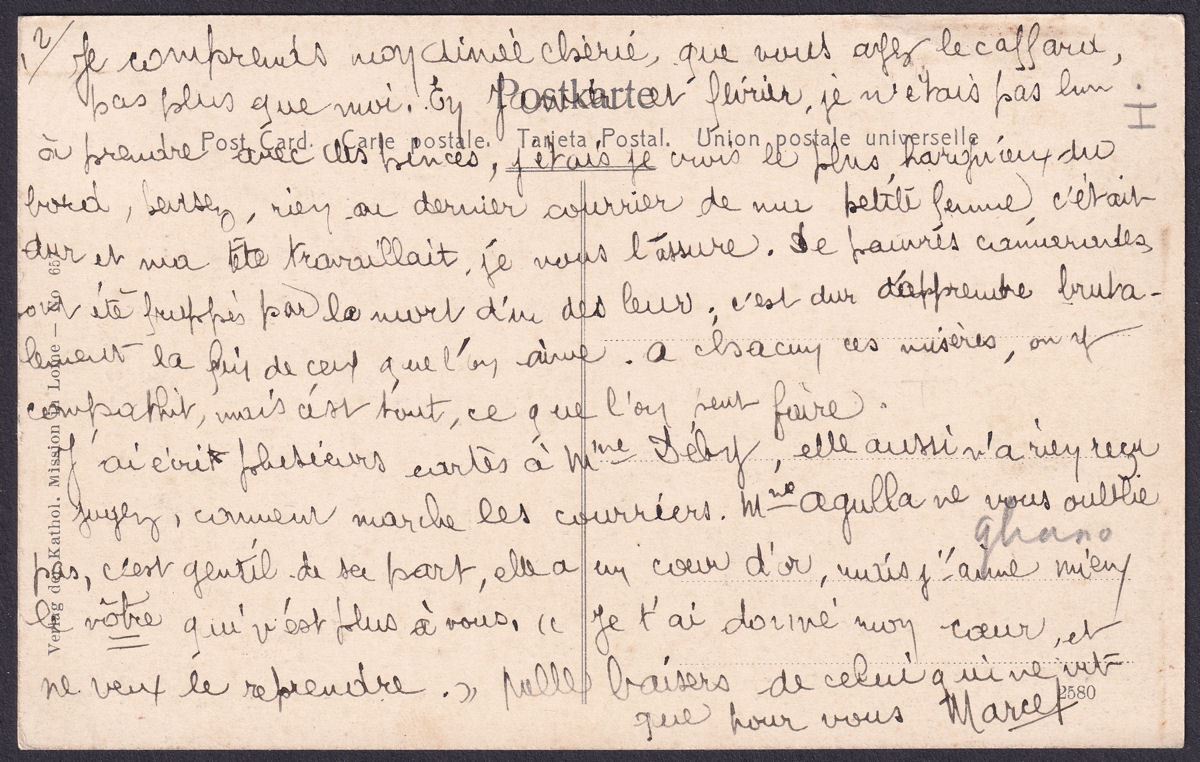 2/ Je comprends mon aimée chérie, que vous ayez le caffard,
pas plus que moi. En Janvier et février, je n'étais pas bon
Postkarte
I
Post Card. Carte postale. Tarjeta Postal. Union postale universelle
à prendre avec des pinces, j'étais je crois le plus hargnieux du
bord, pensez, rien au dernier courrier de ma petite femme, c'était
dur et ma tête travaillait, je vous l'assure. De pauvres
ont été frappés par la mort d'un des leur, c'est dur d'apprendre bruta-
lement la fin de ceux que l'on aime. A chacun ces misères, on y
compathit, mais c'est tout, ce que l'on peut faire.
J'ai écrit plusieurs cartes à Mme Déby, elle aussi n'a rien reçu
jugez, comment marche les courriers. Mme Agulla ne vous oublie
ghano
pas, c'est gentil de sa part, elle a un cœur d'or, mais j'aime mieux
le vôtre qui n'est plus à vous. « Je t'ai donné mon cœur, et
ne veux le reprendre. » Mille baisers de celui qui ne vit
que pour vous Marcel
2580
Verlag der Kathol. Mission in Lome — No 65